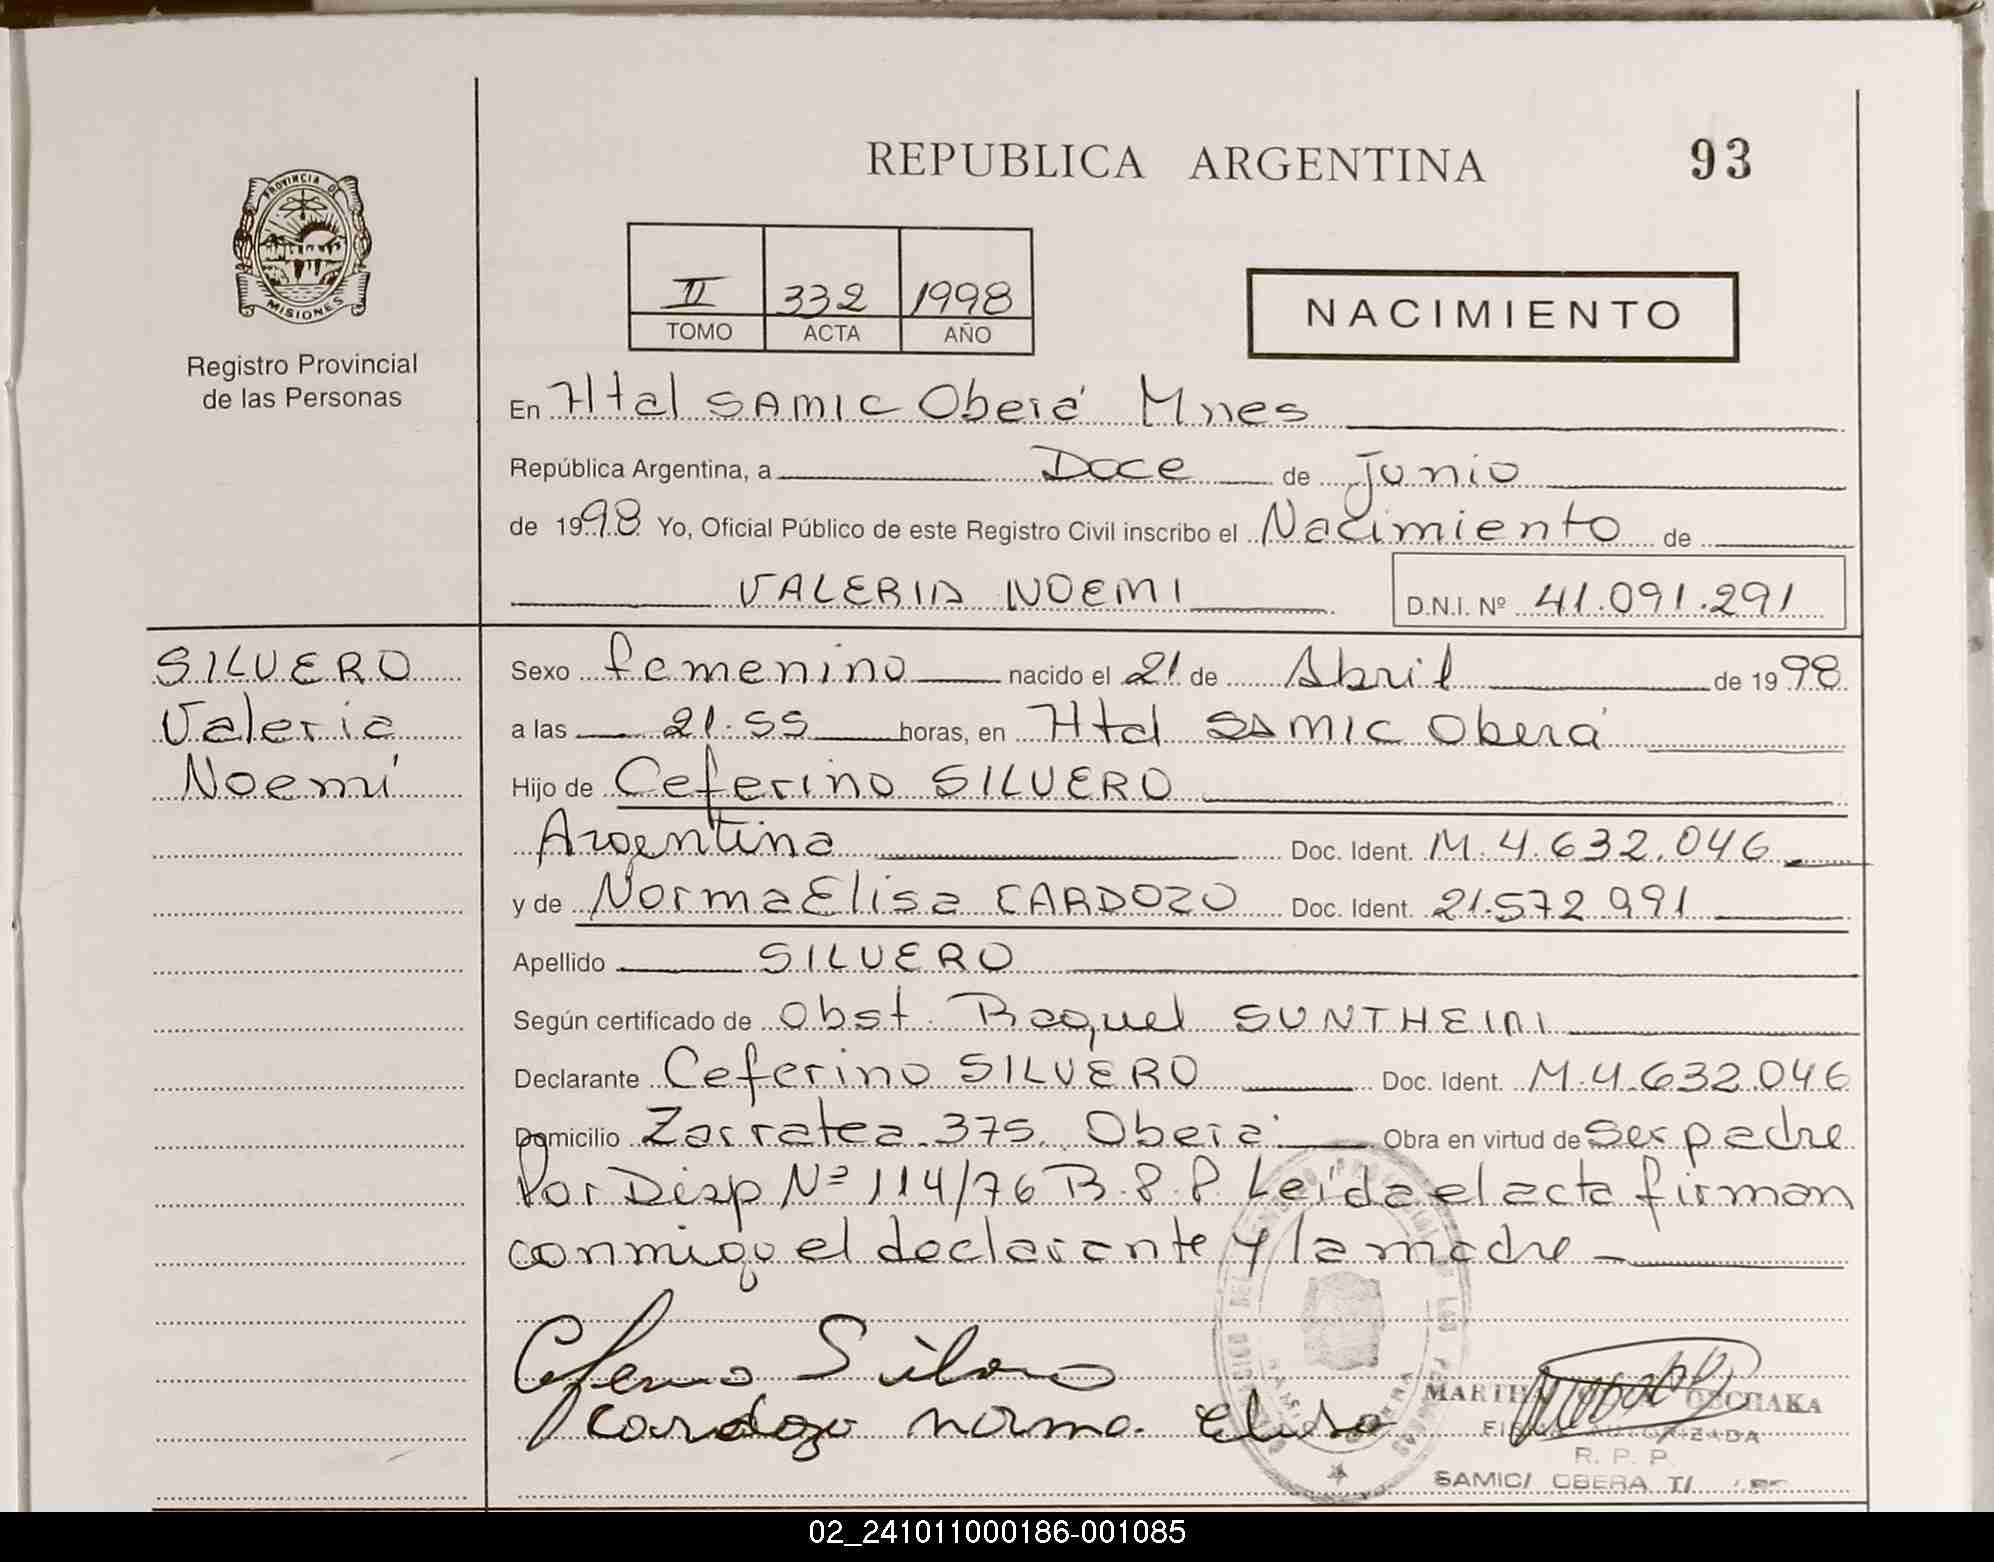 REPUBLICA ARGENTINA
93
PROVINCIA DE
MISIONES
Registro Provincial
de las Personas
II 332 1998
TOMO ACTA AÑO
NACIMIENTO
En Htal SAMIC Oberá Mnes
República Argentina, a Doce de Junio
de 1998 Yo, Oficial Público de este Registro Civil inscribo el Nacimiento de
VALERIA NOEMI D.N.I. Nº 41.091.291
SILVERO
Valeria
Noemí
Sexo femenino nacido el 21 de Abril de 1998
a las 21.55 horas, en Htal SAMIC Oberá
Hijo de Ceferino SILVERO
Argentina Doc. Ident. M.4.632.046
y de Norma Elisa CARDOZO Doc. Ident. 21.572.991
Apellido SILVERO
Según certificado de Obst. Raquel SUNTHEIM
Declarante Ceferino SILVERO Doc. Ident. M.4.632.046
Domicilio Zarratea 375. Oberá Obra en virtud de Ser padre
Por Disp Nº 114/76 R.P.P. Leída el acta firman
conmigo el declarante y la madre
Ceferino Silvero
Cardozo norma elisa
MARTHA
FIRMA AUTORIZADA
R. P. P.
SAMIC/ OBERA
02_241011000186-001085